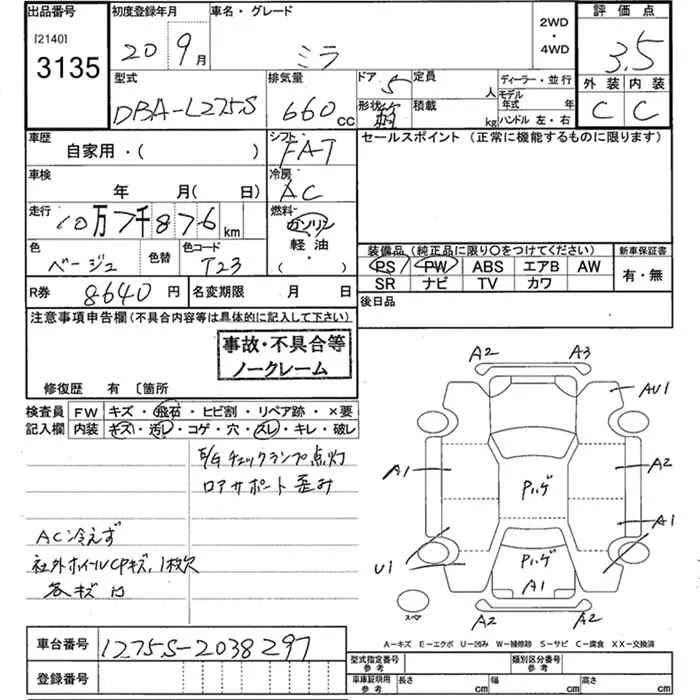 出品番号
[2140]
3135
初度登録年月
20 9月
車名・グレード
ミラ
2WD
・
4WD
評価点
3.5
外装 内装
C C
型式
DBA-L275S
排気量
660 cc
ドア 5
形状 箱
定員 人
積載 kg
ディーラー・並行
モデル年式 年
ハンドル 左・右
車歴
自家用・( )
シフト
FAT
セールスポイント (正常に機能するものに限ります)
車検
年 月( 日)
冷房
AC
走行
10万7千876km
燃料
ガソリン
軽油
( )
色
ベージュ
色替
色コード
T23
装備品 (純正品に限り○をつけてください)
新車保証書
PS PW ABS エアB AW
SR ナビ TV カワ
有・無
R券 8640円
名変期限 月 日
後日品
注意事項申告欄(不具合内容等は具体的に記入して下さい)
事故・不具合等
ノークレーム
修復歴 有 〔箇所
検査員 FW キズ・飛石・ヒビ割・リペア跡・×要
記入欄 内装 キズ・汚レ・コゲ・穴・スレ・キレ・破レ
E/Gチェックランプ点灯
ロアサポート 歪み
AC冷えず
社外ホイールCPキズ,1枚欠
各キズ 凹
A2 A3
AU1
A1 A2
Pハゲ
A1
U1 Pハゲ
A1
A2 A2
スペア
A−キズ E−エクボ U−凹み W−補修跡 S−サビ C−腐食 XX−交換済
車台番号 L275S-2038297
登録番号
型式指定番号 参考
類別区分番号 参考
車庫証明用 参考
長さ cm 幅 cm 高さ cm